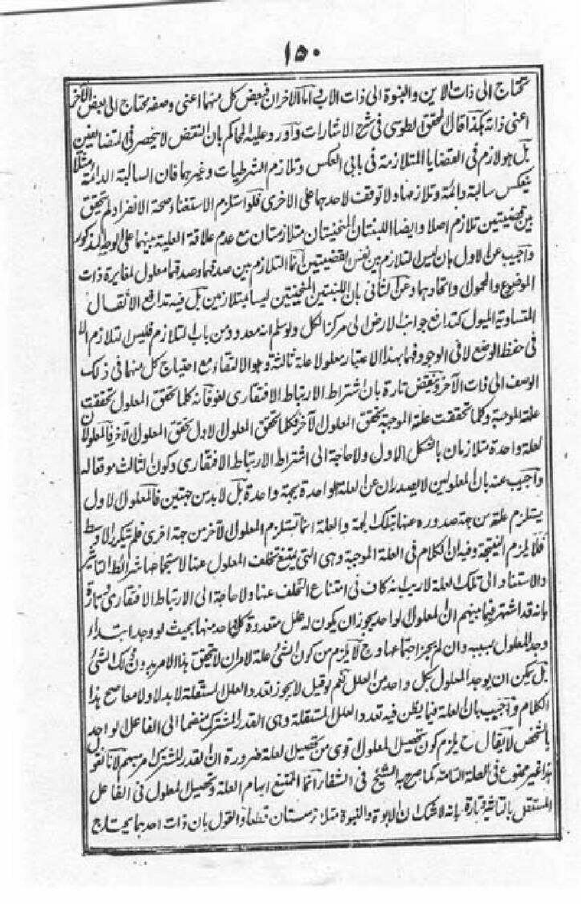 ۱۵۰
تحتاج الى ذات الابن والبنوة الى ذات الاب واما الآخران فبعض كل منهما اعنى وصفه محتاج الى بعض الآخر
اعنى ذاته هكذا قال المحقق الطوسى فى شرح الاشارات واورد عليه المحاكم بان النقض لا ينحصر فى المتضايفين
بل هو لازم فى القضايا المتلازمة فى بابى العكس وتلازم الشرطيات وغيرها فان السالبة الدائمة مثلا
ينعكس سالبة دائمة وتلازمها ولا توقف لاحدهما على الاخرى فلو استلزم الاستغناء صحة الانفراد لم يتحقق
بين قضيتين تلازم اصلا وايضا اللبنتان المنحنيتان متلازمتان مع عدم علاقة العلية بينهما على الوجه المذكور
واجيب عن الاول بان ليس التلازم بين نفس القضيتين انما التلازم بين صدقهما وصدقهما معلول لمغايرة ذات
الموضوع والمحمول واتحادهما وعن الثانى بان اللبنتين المنحنيتين ليسا بمتلازمين بل فيه تدافع الاثقال
المتساوية الميول كتدافع جوانب الارض الى مركز الكل ولو سلم انه معدود من باب التلازم فليس تلازم
فى حفظ الوضع لا فى الوجود فهما بهذا الاعتبار معلولا علة ثالثة وهو الالتقاء مع احتياج كل منهما فى ذلك
الوصف الى ذات الآخر ونقض تارة بان اشتراط الارتباط الافتقارى لغو فانه كلما تحقق المعلول تحققت
علته الموجبة وكلما تحققت علته الموجبة تحقق المعلول الآخر فكلما تحقق المعلول الاول تحقق المعلول الآخر فالمعلولان
لعلة واحدة متلازمان بالشكل الاول ولا حاجة الى اشتراط الارتباط الافتقارى وكون الثالث موقعا له
واجيب عنه بان المعلولين لا يصدران عن العلة الواحدة بجهة واحدة بل لا بد من جهتين فالمعلول الاول
يستلزم علته من جهة صدوره عنها بتلك الجهة والعلة انما تستلزم المعلول الآخر من جهة اخرى فلم يتكرر الاوسط
فلا يلزم النتيجة وفيه ان الكلام فى العلة الموجبة وهى التى يمتنع تخلف المعلول عنها لاستجماعها شرائط التاثير
والاستناد الى تلك العلة لا ريب انه كاف فى امتناع التخلف عنها ولا حاجة الى الارتباط الافتقارى وتارة
بانه قد اشتهر فيما بينهم ان المعلول الواحد يجوز ان يكون له علل متعددة كل واحد منها بحيث لو وجد ابتداء
وجد المعلول بسببه وان لم يجز اجتماعها وح لا يلزم من كون الشئ علة لامر ان لا يتحقق هذا الامر بدون ذلك الشئ
بل يمكن ان يوجد المعلول بكل واحد من العلل نعم لو قيل لا يجوز تعدد العلل المستقلة لا بدلا ولا معا صح هذا
الكلام واجيب بان العلة فيما يظن فيه تعدد العلل المستقلة وهى القدر المشترك منضما الى الفاعل الواحد
بالشخص لا يقال ح يلزم كون تحصيل المعلول اقوى من تحصيل العلة ضرورة ان القدر المشترك امر مبهم لانا نقول
هذا غير ممنوع فى العلة التامة كما صرح به الشيخ فى الشفاء انما الممتنع ابهام العلة وتحصيل المعلول فى الفاعل
المستقل بالتاثير وتارة بانه لا شك ان الابوة والبنوة متلازمتان قطعا فالقول بان ذات احدهما يحتاج